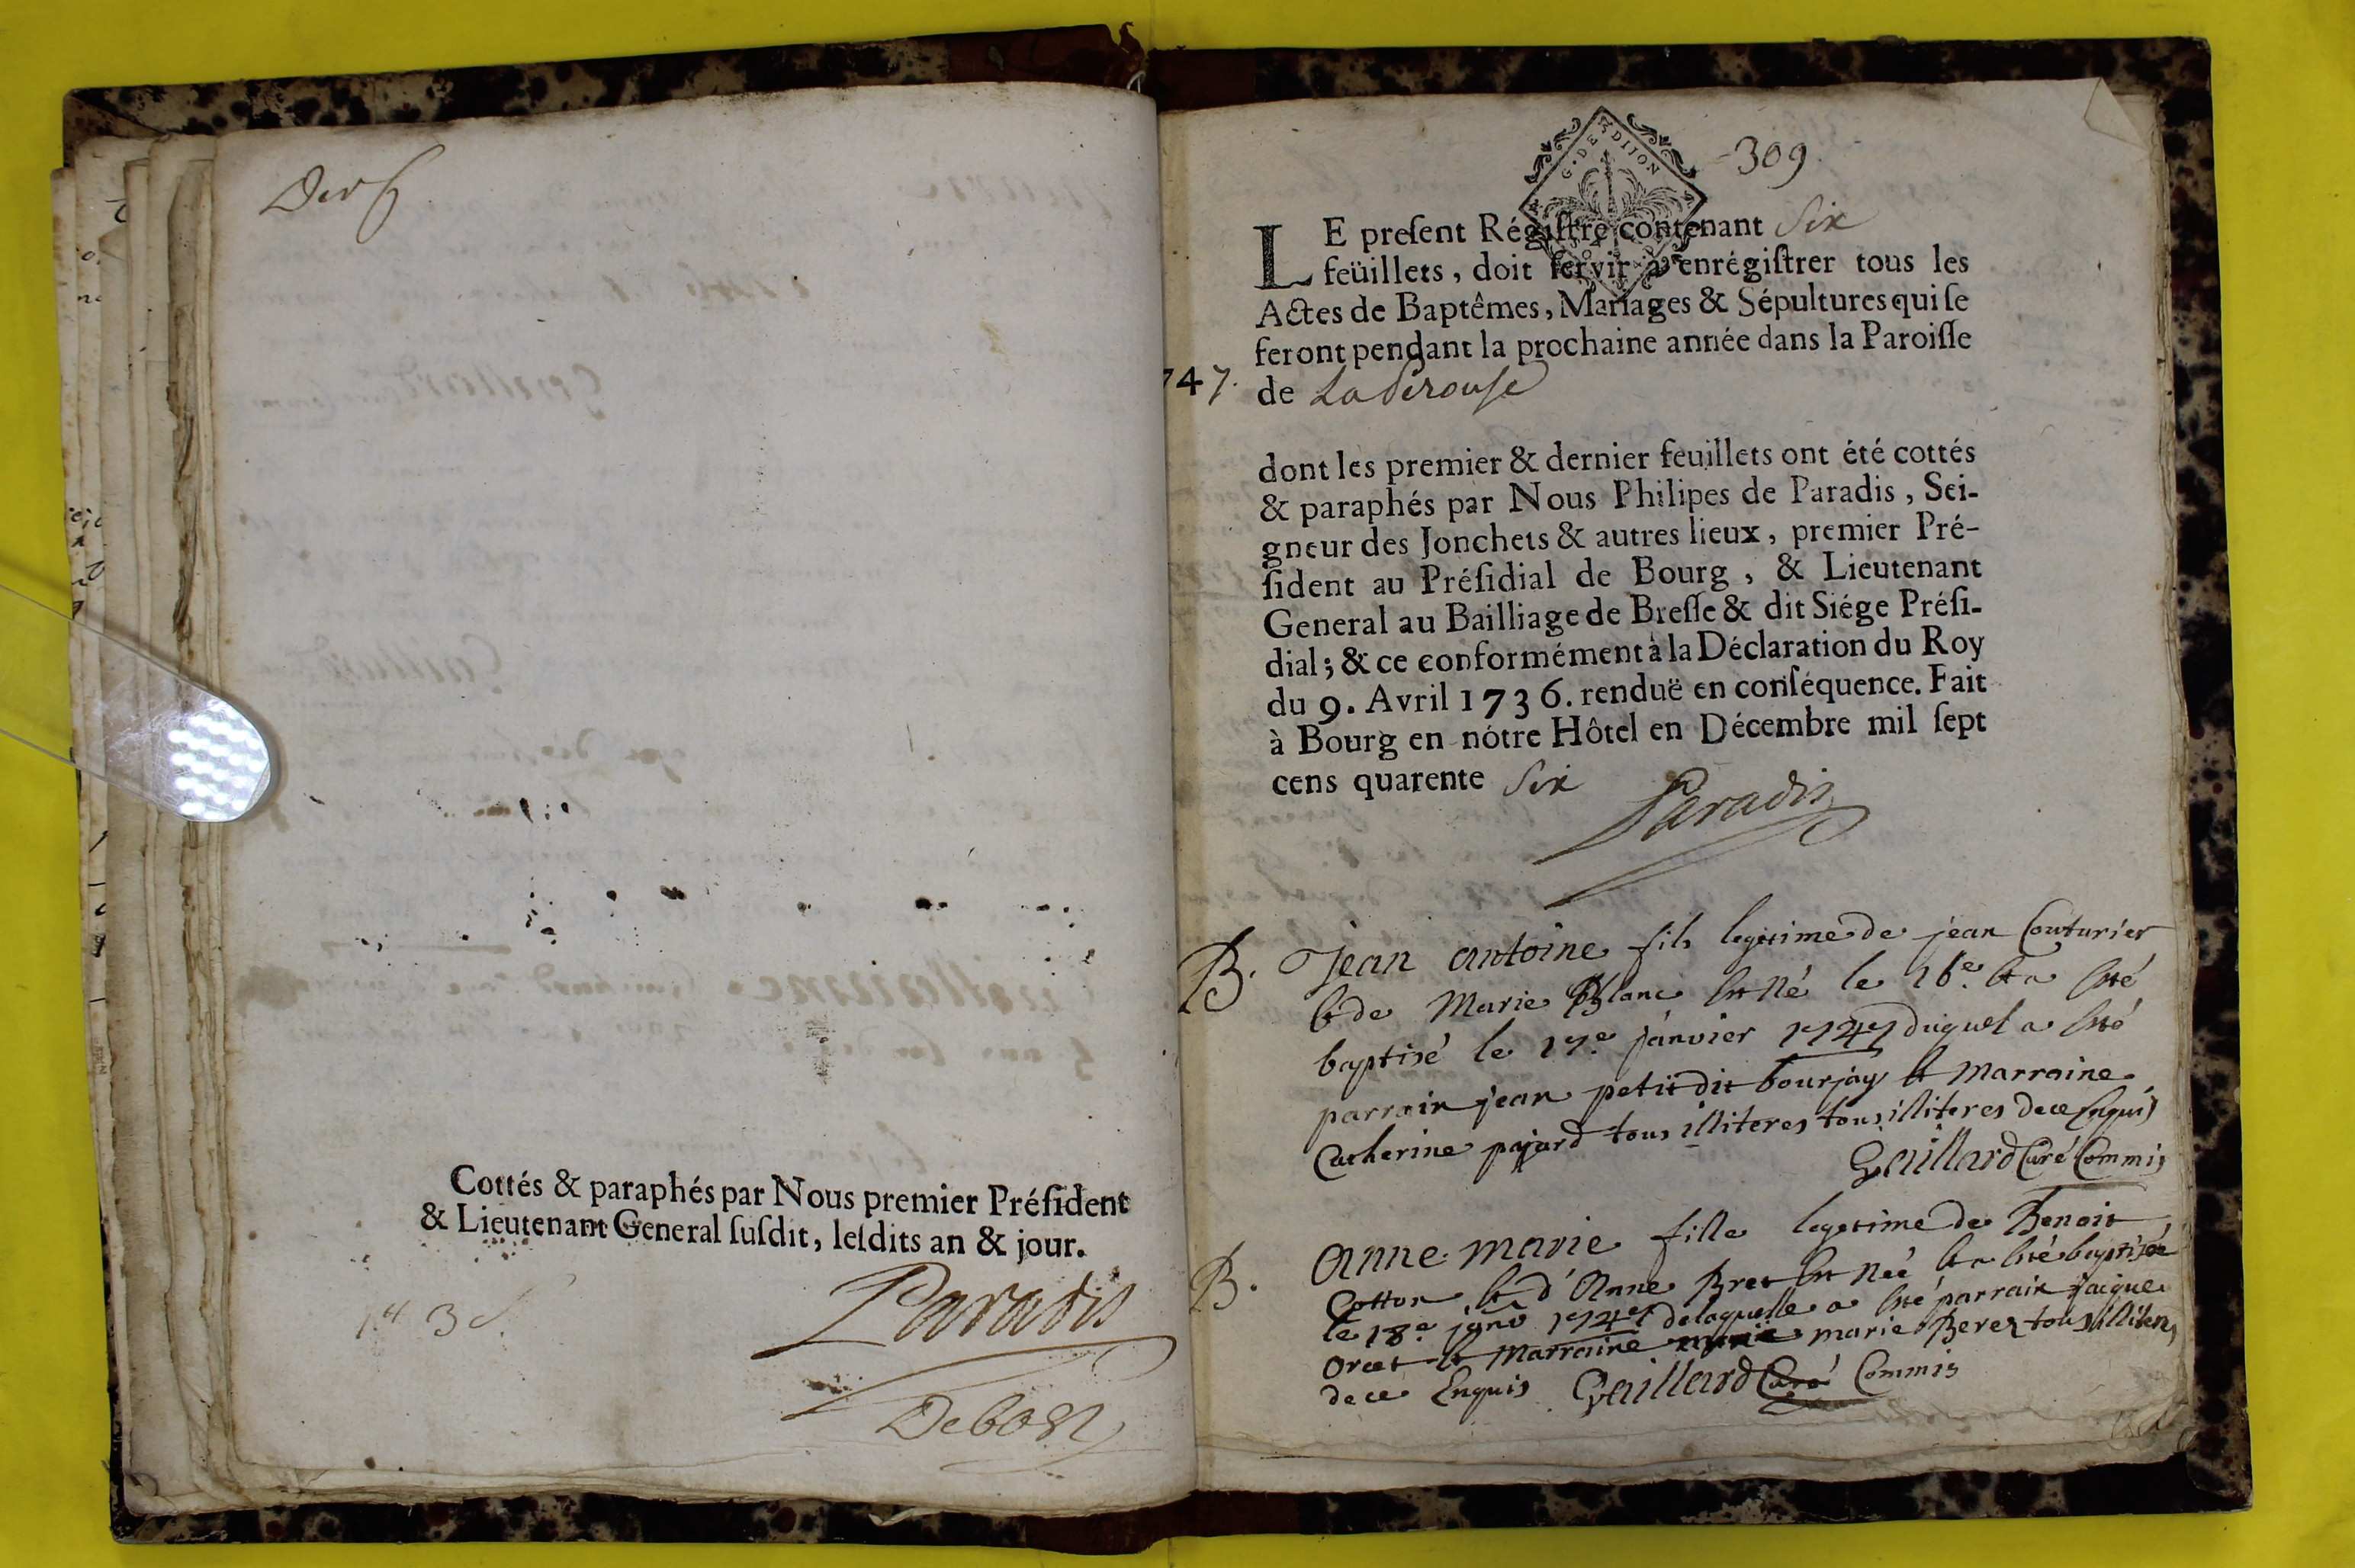 Der 6
Cottés & paraphés par Nous premier Préſident
& Lieutenant General ſuſdit, leſdits an & jour.
Paradis
Debost
G. DE DIJON
309
LE preſent Régiſtre contenant Six
feüillets, doit ſervir à enrégiſtrer tous les
Actes de Baptêmes, Mariages & Sépultures qui ſe
feront pendant la prochaine année dans la Paroiſſe
747. de La Perouse
dont les premier & dernier feuillets ont été cottés
& paraphés par Nous Philipes de Paradis, Sei-
gneur des Jonchets & autres lieux, premier Pré-
ſident au Préſidial de Bourg, & Lieutenant
General au Bailliage de Breſſe & dit Siége Préſi-
dial; & ce conformément à la Déclaration du Roy
du 9. Avril 1736. renduë en conſéquence. Fait
à Bourg en nótre Hôtel en Décembre mil ſept
cens quarente Six
Paradis
B. Jean antoine fils legitime de jean Couturier
et de Marie Blanc est né le 16e. et a esté
baptisé le 17e. janvier 1747 duquel a esté
parrain jean petit dit bourjay et marraine
Catherine pajard tous illiteres tous illiteres de ce Enquis
Gaillard Curé Commis
B. anne marie fille legetime de Benoit
Cotton et d'Anne Bret est née et a esté baptisée
le 18e janv 1747 de laquelle a esté parrain jaique
orcet et marraine marie tous illiteres
de ce Enquis Gaillard Curé Commis